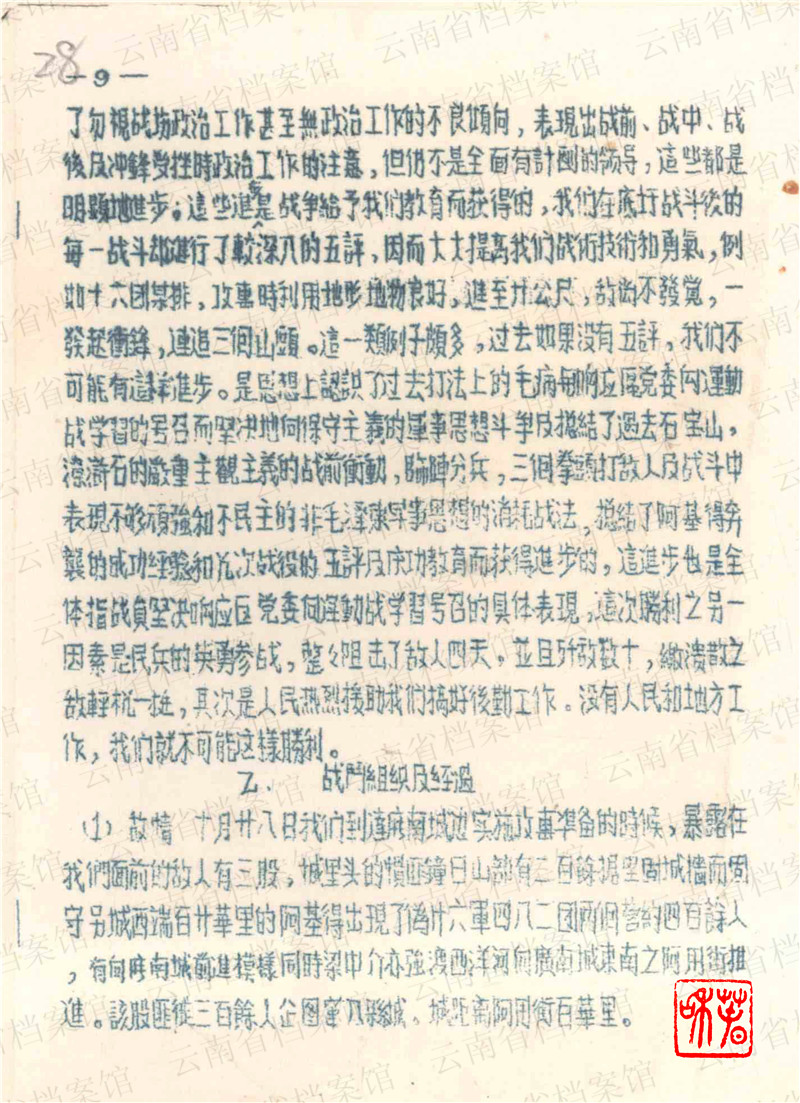 28
—9—
了勿視战场政治工作甚至無政治工作的不良傾向，表現出战前、战中、战
後及冲鋒受挫時政治工作的注意，但仍不是全面有計劃的領导，這些都是
明顕地進步。這些進步是战争給予我们教育而获得的，我们在底圩战斗後的
每一战斗却進行了較深入的五評，因而大大提高我们战術技術和勇氣，例
如十六团某排，攻轟時利用地形地物良好，進至廿公尺，敌尚不發覚，一
發起衝鋒，連追三個山頭。這一類例子頗多，过去如果没有五評，我们不
可能有這样進步。是思想上認識了过去打法上的毛病响应區党委向運動
战学習的号召而坚决地向保守主義的軍事思想斗争及揔結了過去石宝山，
滾滸石的嚴重主觀主義的战前衝動，臨陣分兵，三個拳頭打敌人及战斗中
表現不够頑強和不民主的非毛澤東軍事思想的消耗战法，揔結了阿基得奔
襲的成功經驗和九次战役的五評及成功教育而获得進步的，這進步也是全
体指战員坚决响应区党委向运動战学習号召的具体表現，這次勝利之另一
因素是民兵的英勇参战，整々阻击了敌人四天，並且歼敌数十，繳潰散之
敌輕机一挺，其次是人民热烈援助我们搞好後勤工作。没有人民和地方工
作，我们就不可能这様勝利。
乙． 战鬥組织及经過
(1) 敌情 十月廿八日我们到達麻南城边实施攻轟準备的時候，暴露在
我們面前的敌人有三股，城里头的慣匪鐘日山部有三百餘据坚固城牆而固
守另城西端百廿華里的阿基得出現了偽廿六軍四八二团兩個营約四百餘人
，有向南城前進模樣同時梁中介亦強渡西洋河向廣南城東南之阿用街推
進。該股匪徒三百餘人企图窜縣城，城距离阿用街百華里。
云南省档案馆